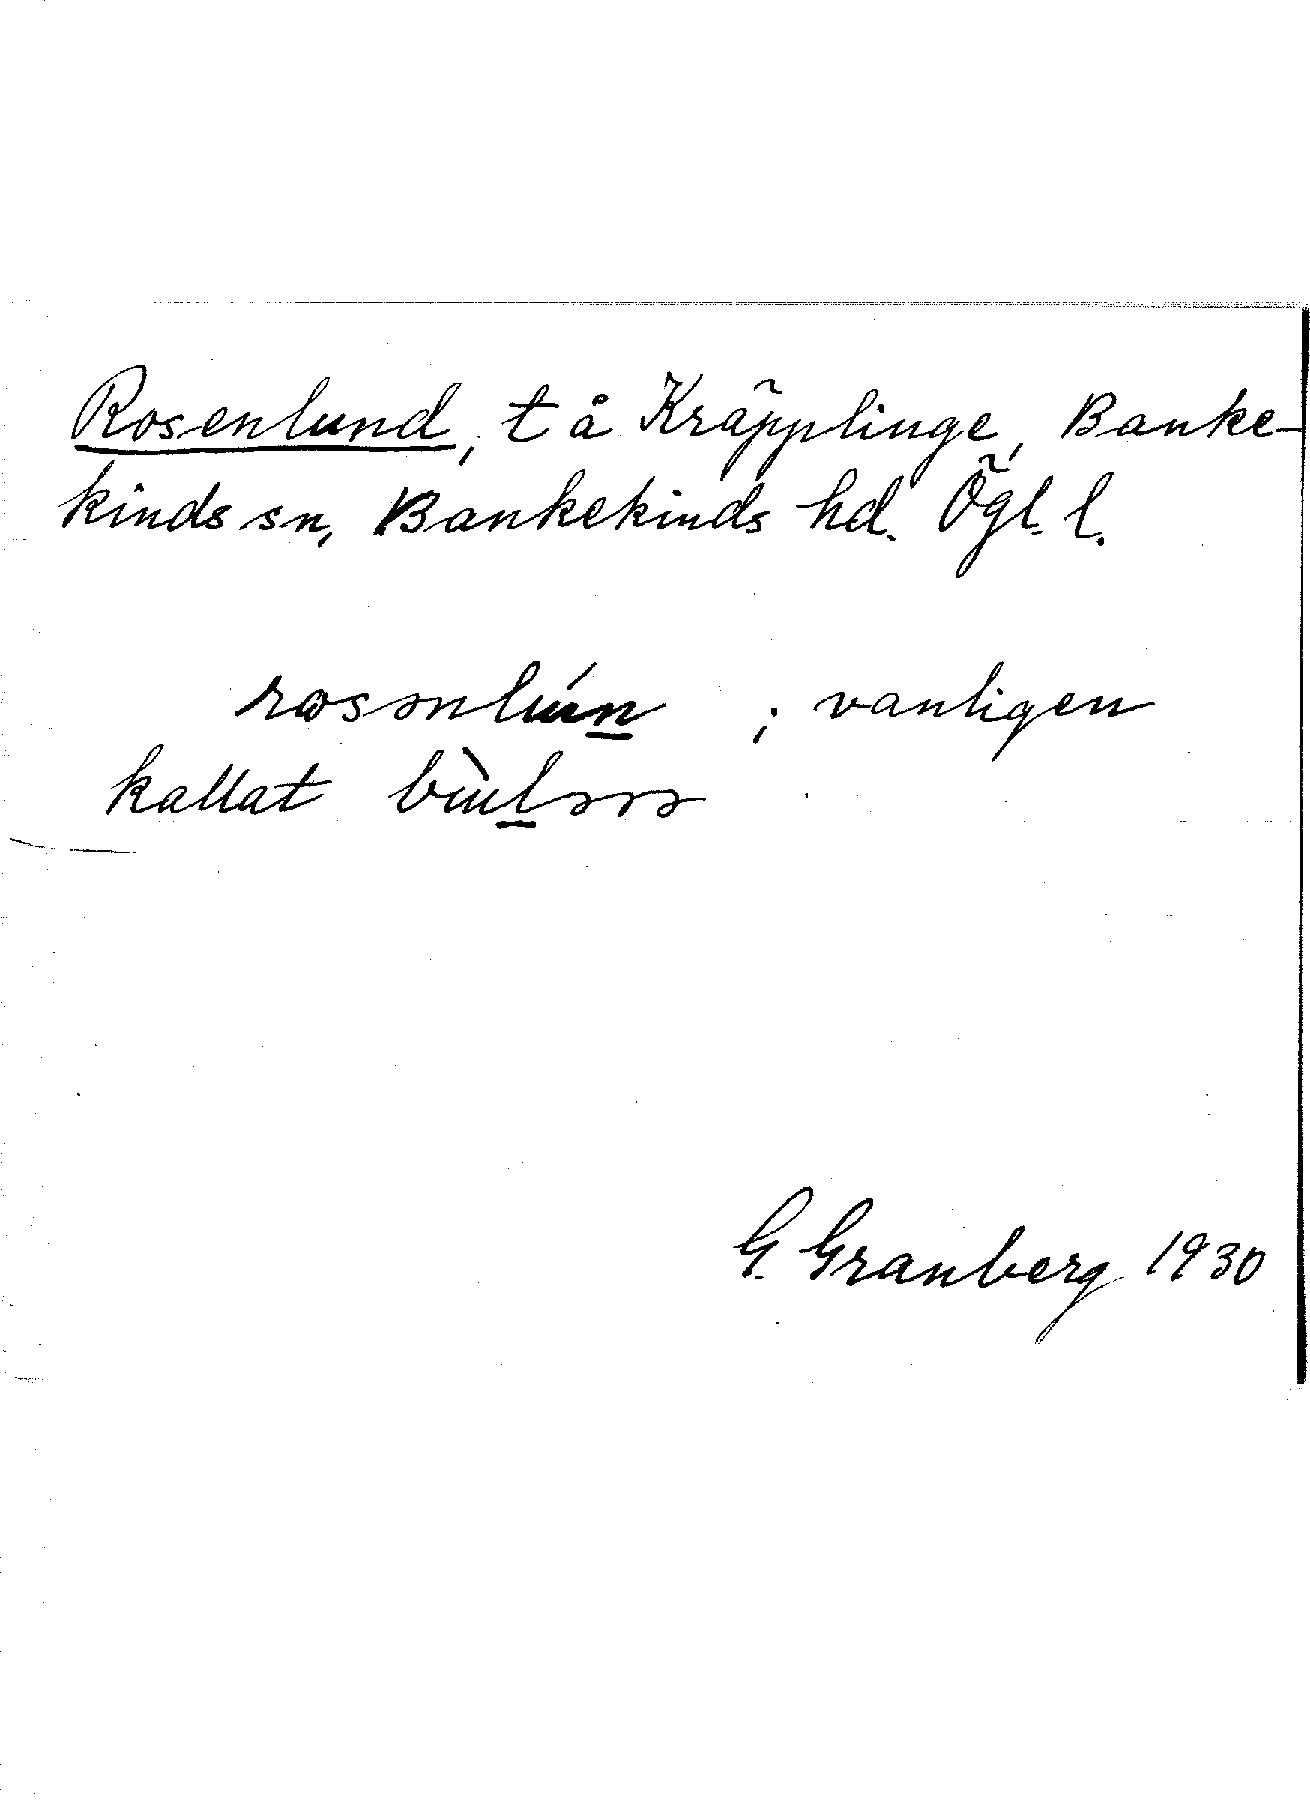 Rosenlund, t å Kräpplinge, Banke-
kinds sn, Bankekinds hd. Ögl. l.
rosənlún ; vanligen
kallat
G. Granberg 1930